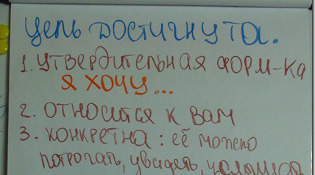 Цель достигнута.
1. утвердительная форм-ка
Я ХОЧУ...
2. относится к вам
3. конкретна: её можно
потрогать, увидеть, услышать